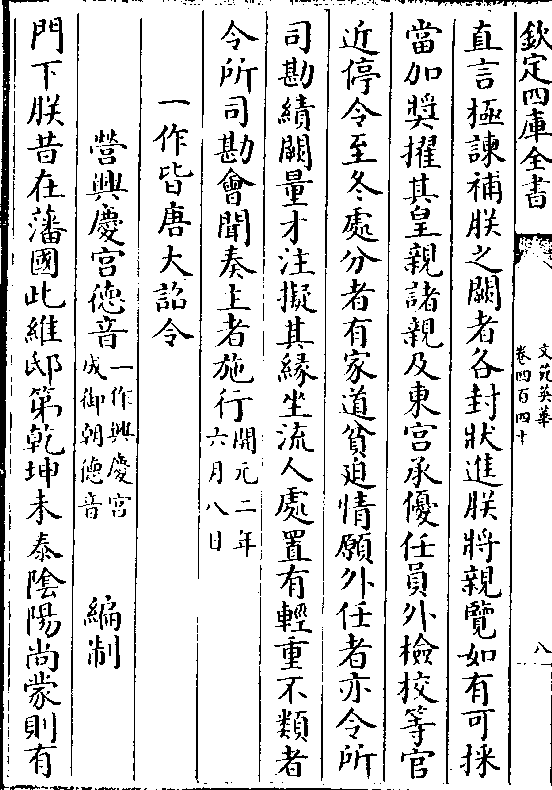 欽定四庫全書
文苑英華
卷四百四十
八
直言極諫補朕之闕者各封狀進朕將親覽如有可採
當加奬擢其皇親諸親及東宮承優任員外檢挍等官
近停令至冬處分者有家道貧廹情願外任者亦令所
司勘績闕量才注擬其緣坐流人處置有輕重不類者
令所司勘會聞奏上者施行開元二年六月八日
一作皆唐大詔令
營興慶宮德音一作興慶宮成御朝德音 編制
門下朕昔在藩國此維邸第乾坤未泰陰陽尚蒙則有